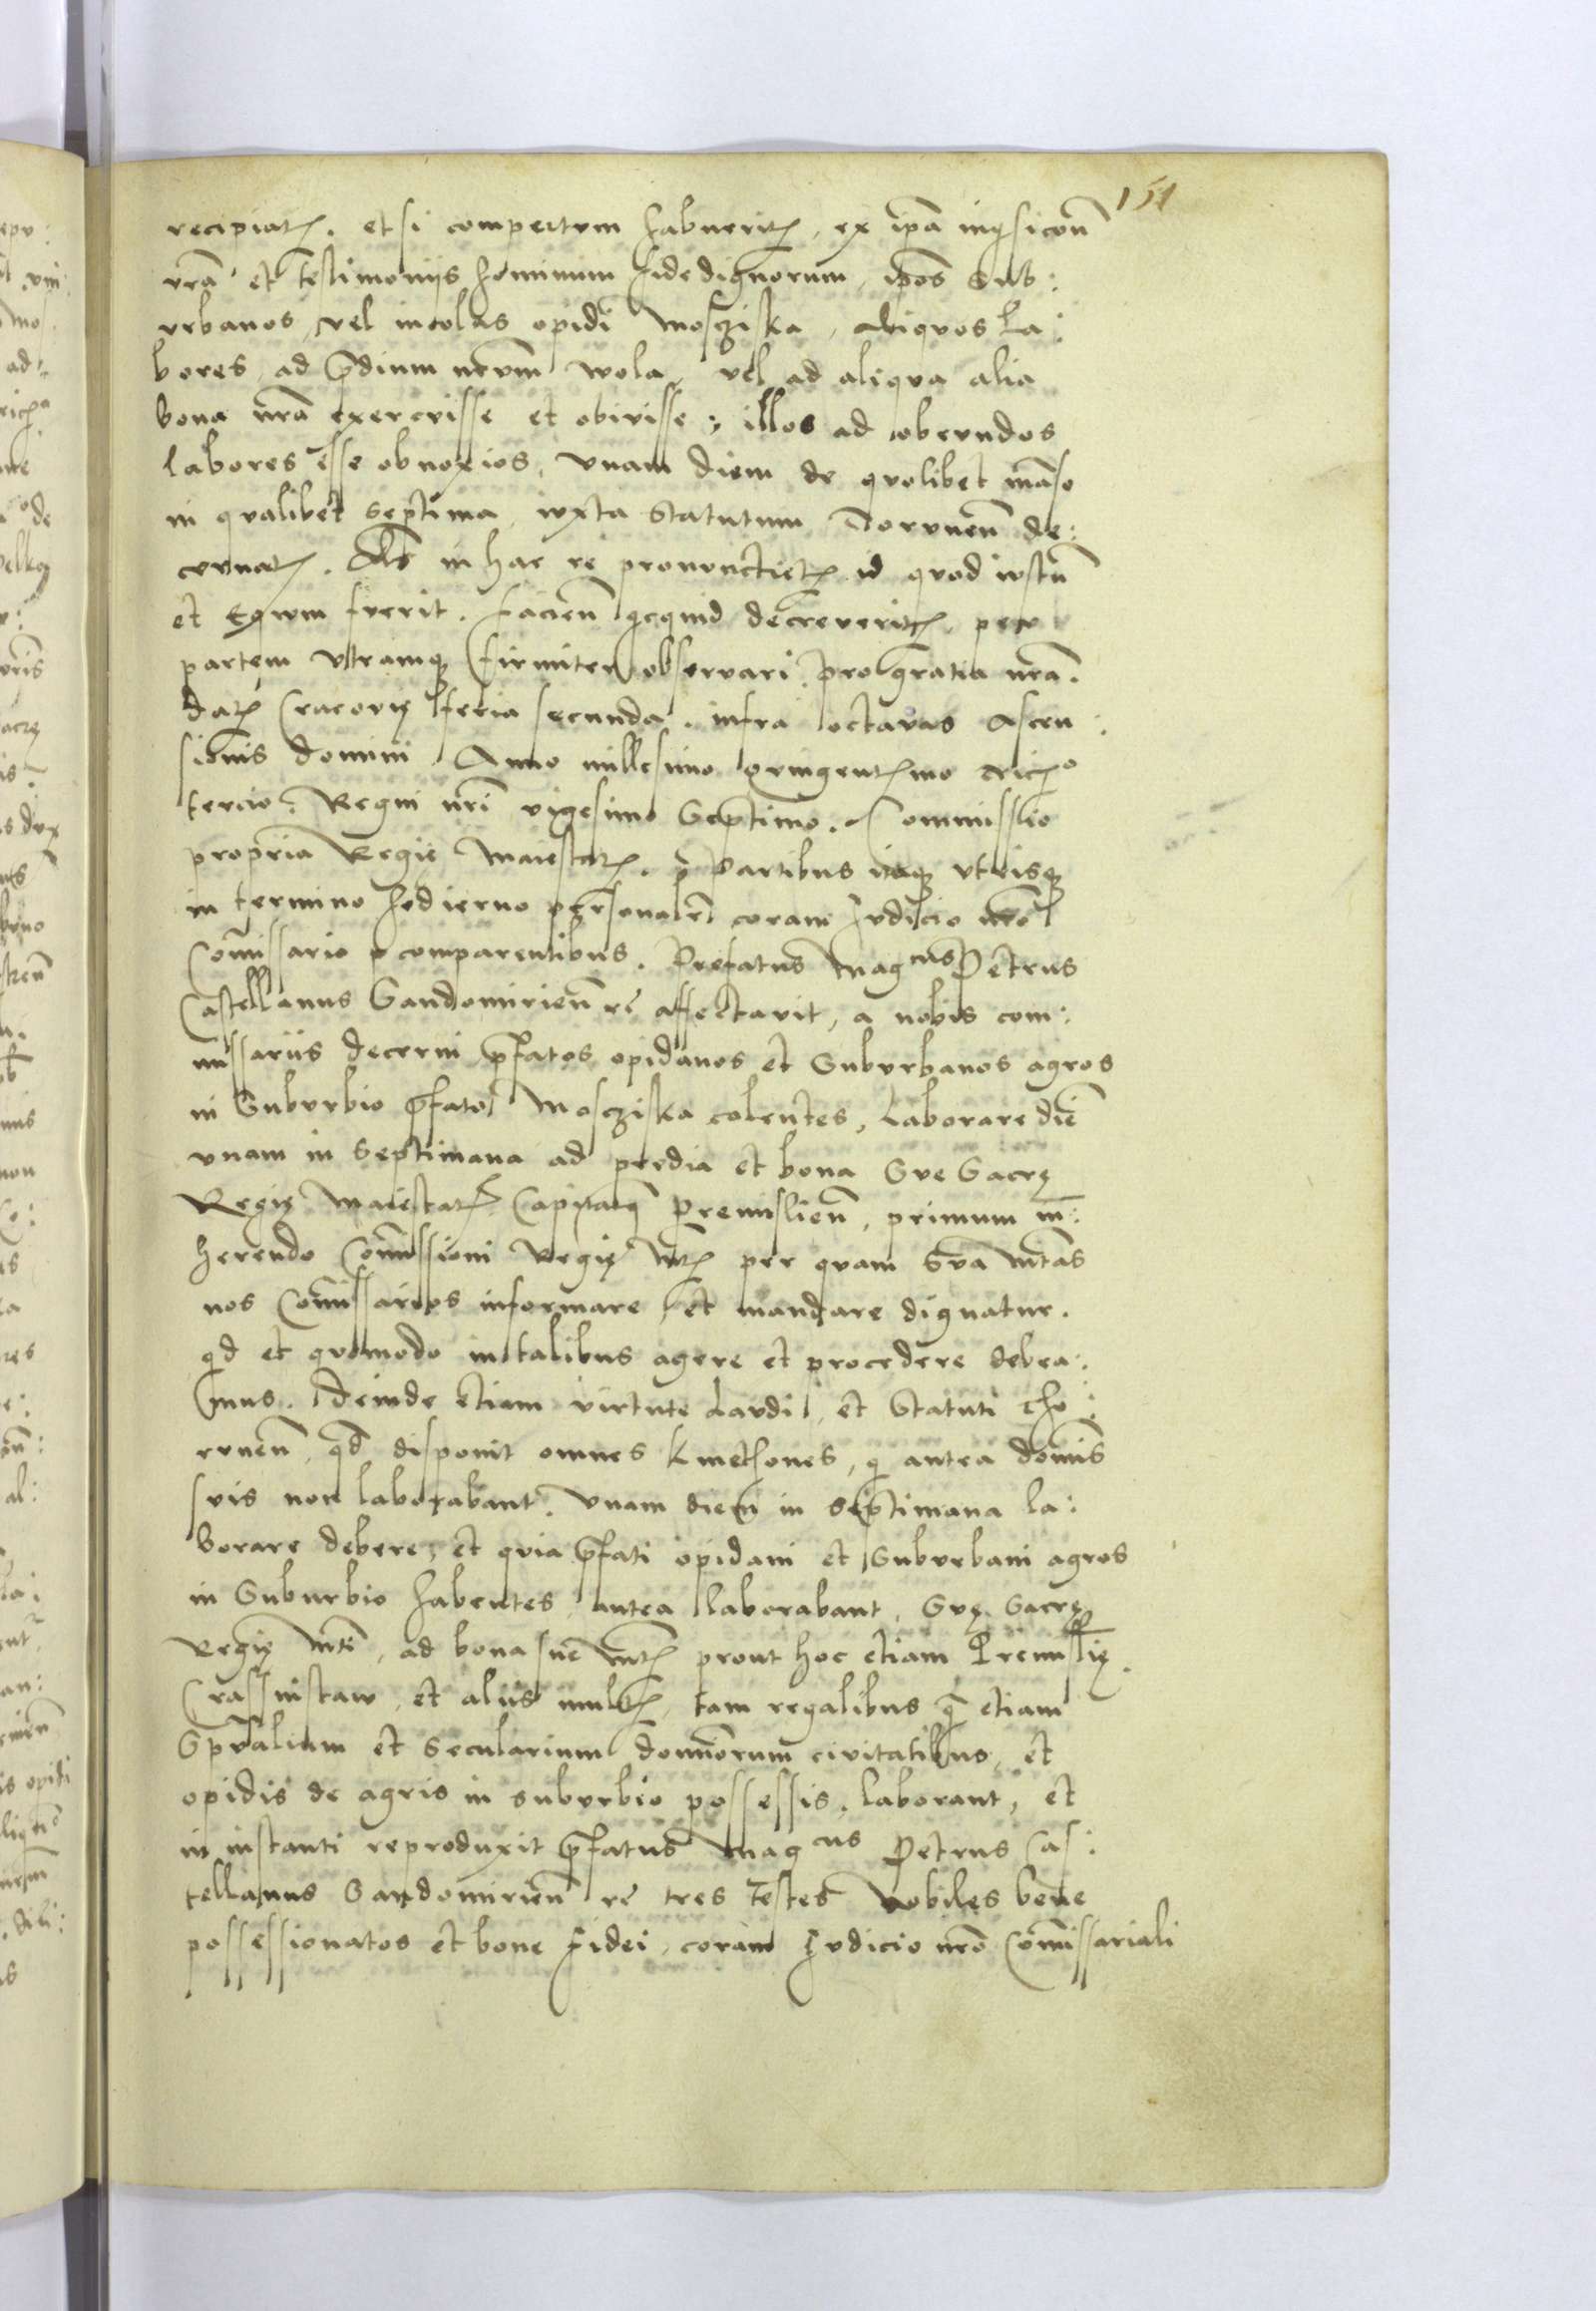 151
recipiatꝭ. et si compertvm habueritꝭ, ex ipã inqsicoñ
vrã et testimoniis hominum fide dignorum, ipos Sub:
vrbanos, vel incolas opidi Mosziska, aliquos La:
bores, ad p̃dium nrum Wola, vel ad aliqua alia
bona nrã exercuisse et obivisse, illos ad obeundos
labores esse obnoxios, vnam diem de quolibet manso
in qualibet septima, iuxta Statutum Toruneñ de:
cernatꝭ. Als in hac re pronunctietꝭ id quod iustũ
et equm fuerit. facieñ qcquid decreveritꝭ, per
partem vtramqꝫ firmiter observari. pro gratia nrã.
datꝭ Cracovię feria secunda. infra octavas Ascen:
sionis domini Anno millesimo quingentꝭmo tricꝭo
tercio. Regni nrĩ vigesimo Septimo. Commissio
propria Regię Maiestatꝭ. Partibus itaqꝫ vtrisqꝫ
in termino hodierno personalr̃ coram Judicio nrõ
Com̃issario comparentibus. Prefatus Magcus Petrus
Castellanus Sandomirieñ rc̃ affectavit, a nobis com:
missariis decerni p̃fatos opidanos et Suburbanos agros
in Suburbio p̃fato Mosziska colentes, Laborare diẽ
vnam in Septimana ad predia et bona Sue Sacrę
Regię Maiestatꝭ Capitatꝰ Premislieñ, primum in:
herendo Com̃issioni Regię Mtꝭ per quam Sua Mtas
nos Com̃issarios informare et mandare dignatur.
qd et quomodo in talibus agere et procedere debea:
mus. Deinde etiam virtute Laudi, et Statuti Tho:
runeñ, qd disponit omnes kmethones, q antea domĩs
suis non laborabant. vnam diem in septimana la:
borare debere, et quia p̃fati opidani et Suburbani agros
in Suburbio habentes antea laborabant, Suę Sacrę
Regię Mti, ad bona sue Mtꝭ prout hoc etiam Premislię
Crassnistaw, et aliis multꝭ tam regalibus q̃ etiam
Spualium et Secularium dominorum civitatibus, et
opidis de agris in suburbio possessis. laborant, et
in instanti reproduxit p̃fatus Magcus Petrus Cas:
tellanus Sandomirieñ rc̃ tres testes nobiles bene
possessionatos et bone fidei, coram Judicio nrõ Com̃issariali